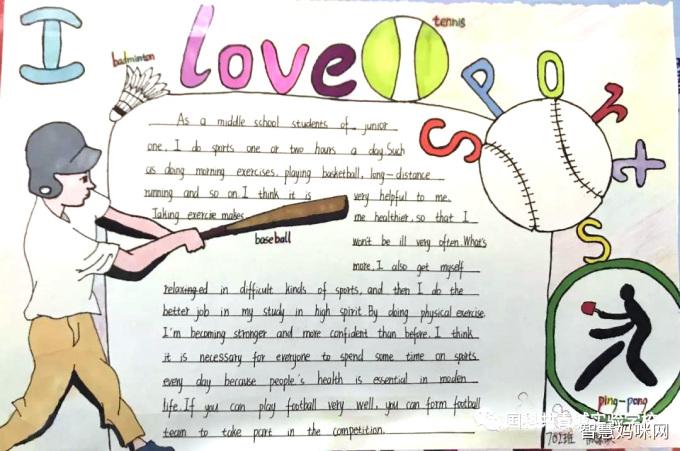 I love Sports
badminton
tennis
As a middle school students of junior
one, I do sports one or two hours a day. Such
as doing morning exercises, playing basketball, long-distance
running and so on. I think it is very helpful to me.
Taking exercise makes me healthier, so that I
baseball
won't be ill very often. What's
more, I also get myself
relaxed in difficult kinds of sports, and then I do the
better job in my study in high spirit. By doing physical exercise.
I'm becoming stronger and more confident than before. I think
it is necessary for everyone to spend some time on sports
every day because people's health is essential in moden
life. If you can play football very well, you can form football
team to take part in the competition.
ping-pong
智慧妈咪网